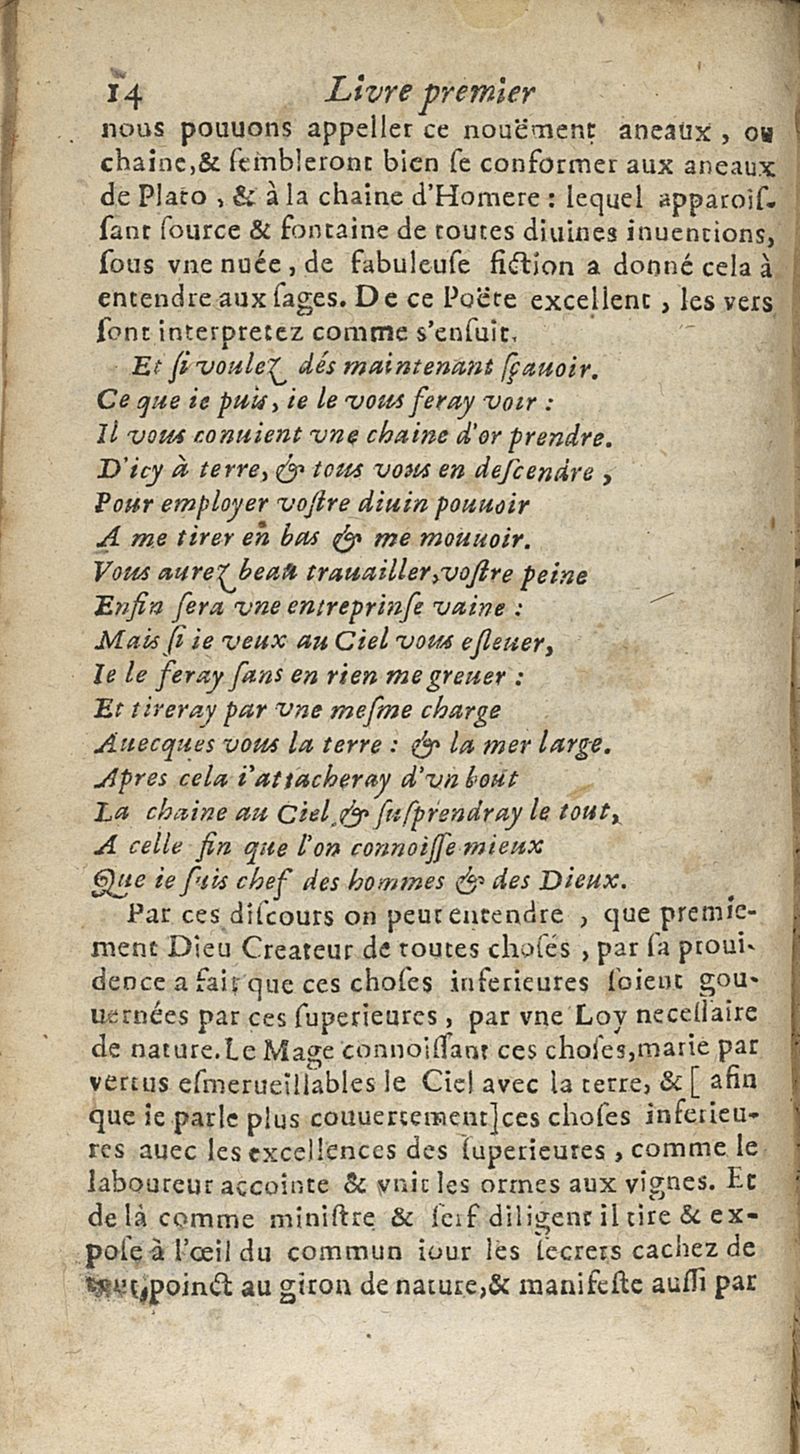 14 Livre premier
nous pouuons appeller ce nouëment aneaux, ou
chaine,& ſembleront bien ſe conformer aux aneaux
de Plato, & à la chaine d'Homere : lequel apparoiſ-
ſant ſource & fontaine de toutes diuines inuentions,
ſous vne nuée, de fabuleuſe fiction a donné cela à
entendre aux ſages. De ce Poëte excellent, les vers
ſont interpretez comme s'enſuit,
Et ſi voulez dés maintenant ſçauoir.
Ce que ie puis, ie le vous feray voir :
Il vous conuient vne chaine d'or prendre.
D'icy à terre, & tous vous en deſcendre,
Pour employer voſtre diuin pouuoir
A me tirer en bas & me mouuoir.
Vous aurez beau trauailler,voſtre peine
Enfin ſera vne entreprinſe vaine :
Mais ſi ie veux au Ciel vous eſleuer,
Ie le feray ſans en rien me greuer :
Et tireray par vne meſme charge
Auecques vous la terre : & la mer large.
Apres cela i'attacheray d'vn bout
La chaine au Ciel,& ſuſprendray le tout,
A celle fin que l'on connoiſſe mieux
Que ie ſuis chef des hommes & des Dieux.
Par ces diſcours on peut entendre, que premie-
ment Dieu Createur de toutes choſes, par ſa proui-
dence a fait que ces choſes inferieures ſoient gou-
uernées par ces ſuperieures, par vne Loy neceſſaire
de nature. Le Mage connoiſſant ces choſes,marie par
vertus eſmerueillables le Ciel avec la terre, & [ afin
que ie parle plus couuertement]ces choſes inferieu-
res auec les excellences des ſuperieures, comme le
laboureur accointe & vnit les ormes aux vignes. Et
de là comme miniſtre & ſerf diligent il tire & ex-
poſe à l'œil du commun iour les ſecrets cachez de
poinct au giron de nature,& manifeſte auſſi par